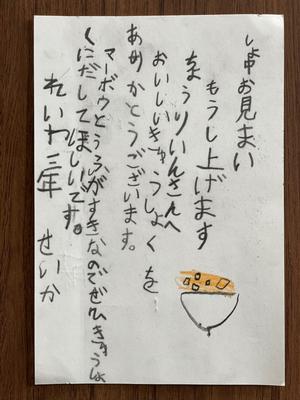 しょ中お見まい
もうし上げます
ちょうりいんさんへ
おいしいきゅうしょくを
ありがとうございます。
マーボウどうふがすきなのでぜひきゅうしょ
くにだしてほしいです。
れいわ三年 せいか